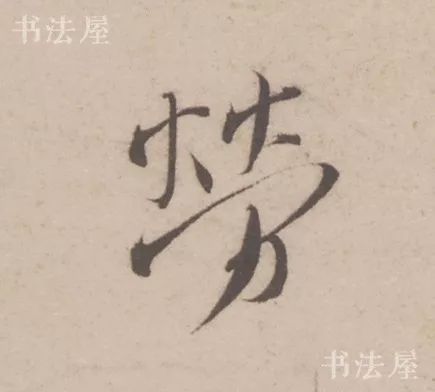 书法屋
勞
书法屋